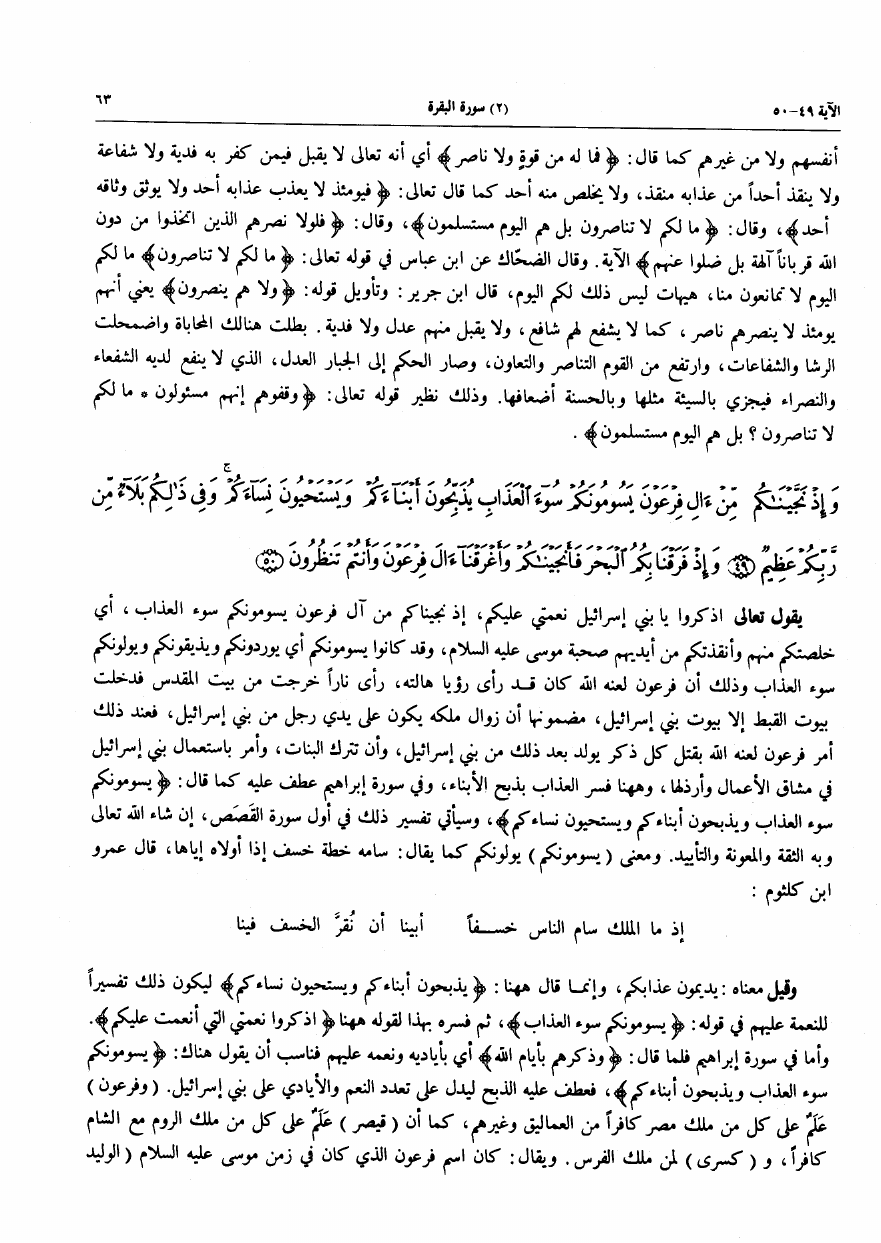 الآية ٤٩-٥٠ (٢) سورة البقرة ٦٣
أنفسهم ولا من غيرهم كما قال: ﴿ فما له من قوةٍ ولا ناصر ﴾ أي أنه تعالى لا يقبل فيمن كفر به فدية ولا شفاعة
ولا ينقذ أحداً من عذابه منقذ، ولا يخلص منه أحد كما قال تعالى: ﴿ فيومئذ لا يعذب عذابه أحد ولا يوثق وثاقه
أحد ﴾، وقال: ﴿ ما لكم لا تناصرون بل هم اليوم مستسلمون ﴾، وقال: ﴿ فلولا نصرهم الذين اتخذوا من دون
الله قرباناً آلهة بل ضلوا عنهم ﴾ الآية. وقال الضحّاك عن ابن عباس في قوله تعالى: ﴿ ما لكم لا تناصرون ﴾ ما لكم
اليوم لا تمانعون منا، هيهات ليس ذلك لكم اليوم، قال ابن جرير: وتأويل قوله: ﴿ ولا هم ينصرون ﴾ يعني أنهم
يومئذ لا ينصرهم ناصر، كما لا يشفع لهم شافع، ولا يقبل منهم عدل ولا فدية. بطلت هنالك المحاباة واضمحلت
الرشا والشفاعات، وارتفع من القوم التناصر والتعاون، وصار الحكم إلى الجبار العدل، الذي لا ينفع لديه الشفعاء
والنصراء فيجزي بالسيئة مثلها وبالحسنة أضعافها. وذلك نظير قوله تعالى: ﴿ وقفوهم إنهم مسئولون * ما لكم
لا تناصرون ؟ بل هم اليوم مستسلمون ﴾ .
وَإِذْ نَجَّيْنَـٰكُم مِّنْ ءَالِ فِرْعَوْنَ يَسُومُونَكُمْ سُوٓءَ ٱلْعَذَابِ يُذَبِّحُونَ أَبْنَآءَكُمْ وَيَسْتَحْيُونَ نِسَآءَكُمْ ۚ وَفِى ذَٰلِكُم بَلَآءٌ مِّن
رَّبِّكُمْ عَظِيمٌ ﴿٤٩﴾ وَإِذْ فَرَقْنَا بِكُمُ ٱلْبَحْرَ فَأَنجَيْنَـٰكُمْ وَأَغْرَقْنَآ ءَالَ فِرْعَوْنَ وَأَنتُمْ تَنظُرُونَ ﴿٥٠﴾
يقول تعالى اذكروا يا بني إسرائيل نعمتي عليكم، إذ نجيناكم من آل فرعون يسومونكم سوء العذاب، أي
خلصتكم منهم وأنقذتكم من أيديهم صحبة موسى عليه السلام، وقد كانوا يسومونكم أي يوردونكم ويذيقونكم ويولونكم
سوء العذاب وذلك أن فرعون لعنه الله كان قـد رأى رؤيا هالته، رأى ناراً خرجت من بيت المقدس فدخلت
بيوت القبط إلا بيوت بني إسرائيل، مضمونها أن زوال ملكه يكون على يدي رجل من بني إسرائيل، فعند ذلك
أمر فرعون لعنه الله بقتل كل ذكر يولد بعد ذلك من بني إسرائيل، وأن تترك البنات، وأمر باستعمال بني إسرائيل
في مشاق الأعمال وأرذلها، وههنا فسر العذاب بذبح الأبناء، وفي سورة إبراهيم عطف عليه كما قال: ﴿ يسومونكم
سوء العذاب ويذبحون أبناءكم ويستحيون نساءكم ﴾، وسيأتي تفسير ذلك في أول سورة القَصَص، إن شاء الله تعالى
وبه الثقة والمعونة والتأييد. ومعنى ( يسومونكم ) يولونكم كما يقال: سامه خطة خسف إذا أولاه إياها، قال عمرو
ابن كلثوم :
إذ ما الملك سام الناس خسـفاً أبينا أن نُقرَّ الخسف فينا
وقيل معناه : يديمون عذابكم، وإنما قال ههنا: ﴿ يذبحون أبناءكم ويستحيون نساءكم ﴾ ليكون ذلك تفسيراً
للنعمة عليهم في قوله: ﴿ يسومونكم سوء العذاب ﴾، ثم فسره بهذا لقوله ههنا ﴿ اذكروا نعمتي التي أنعمت عليكم ﴾.
وأما في سورة إبراهيم فلما قال: ﴿ وذكرهم بأيام الله ﴾ أي بأياديه ونعمه عليهم فناسب أن يقول هناك: ﴿ يسومونكم
سوء العذاب ويذبحون أبناءكم ﴾، فعطف عليه الذبح ليدل على تعدد النعم والأيادي على بني إسرائيل. ( وفرعون )
عَلَمٌ على كل من ملك مصر كافراً من العماليق وغيرهم، كما أن ( قيصر ) عَلَمٌ على كل من ملك الروم مع الشام
كافراً، و ( كسرى ) لمن ملك الفرس. ويقال: كان اسم فرعون الذي كان في زمن موسى عليه السلام ( الوليد